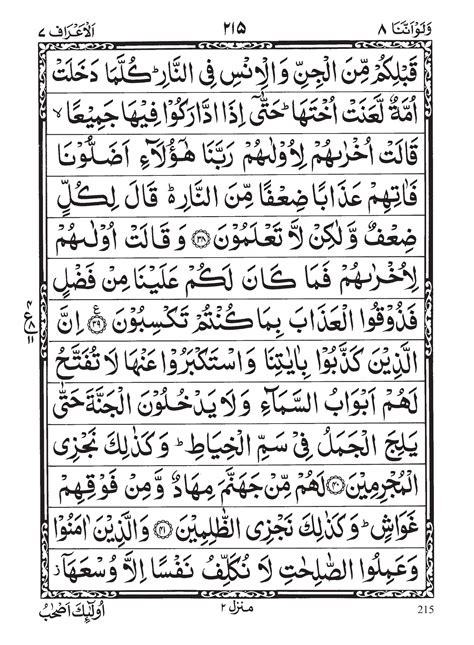 وَلَوۡاَنَّنَا ۸ ۲۱۵ اَلۡاَعۡرَاف ۷
قَبۡلِكُمۡ مِّنَ الۡجِنِّ وَالۡاِنۡسِ فِى النَّارِ ؕ كُلَّمَا دَخَلَتۡ
اُمَّةٌ لَّعَنَتۡ اُخۡتَهَا ؕ حَتّٰۤى اِذَا ادَّارَكُوۡا فِيۡهَا جَمِيۡعًا ۙ
قَالَتۡ اُخۡرٰٮهُمۡ لِاُوۡلٰٮهُمۡ رَبَّنَا هٰٓؤُلَۤاءِ اَضَلُّوۡنَا
فَاٰتِهِمۡ عَذَابًا ضِعۡفًا مِّنَ النَّارِ ؕ قَالَ لِكُلٍّ
ضِعۡفٌ وَّلٰكِنۡ لَّا تَعۡلَمُوۡنَ ﴿۳۸﴾ وَقَالَتۡ اُوۡلٰٮهُمۡ
لِاُخۡرٰٮهُمۡ فَمَا كَانَ لَكُمۡ عَلَيۡنَا مِنۡ فَضۡلٍ
فَذُوۡقُوا الۡعَذَابَ بِمَا كُنۡتُمۡ تَكۡسِبُوۡنَ ﴿۳۹﴾ ع اِنَّ
۴ ع ۸ ۱۱
الَّذِيۡنَ كَذَّبُوۡا بِاٰيٰتِنَا وَاسۡتَكۡبَرُوۡا عَنۡهَا لَا تُفَتَّحُ
لَهُمۡ اَبۡوَابُ السَّمَآءِ وَلَا يَدۡخُلُوۡنَ الۡجَنَّةَ حَتّٰى
يَلِجَ الۡجَمَلُ فِىۡ سَمِّ الۡخِيَاطِ ؕ وَكَذٰلِكَ نَجۡزِى
الۡمُجۡرِمِيۡنَ ﴿۴۰﴾ لَهُمۡ مِّنۡ جَهَنَّمَ مِهَادٌ وَّمِنۡ فَوۡقِهِمۡ
غَوَاشٍ ؕ وَكَذٰلِكَ نَجۡزِى الظّٰلِمِيۡنَ ﴿۴۱﴾ وَالَّذِيۡنَ اٰمَنُوۡا
وَعَمِلُوا الصّٰلِحٰتِ لَا نُكَلِّفُ نَفۡسًا اِلَّا وُسۡعَهَاۤ ز
اُولٰٓئِكَ اَصۡحٰبُ منزل ۲ 215